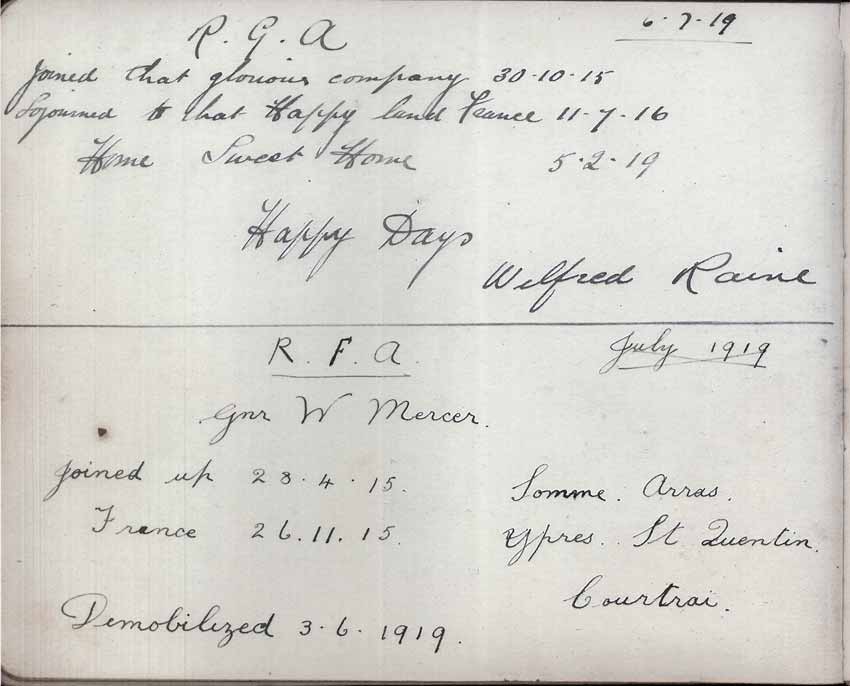 6·7·19
R. G. A
Joined that glorious company 30·10·15
Sojourned to that Happy land France 11·7·16
Home Sweet Home 5·2·19
Happy Days
Wilfred Raine
R. F. A.
July 1919
Gnr W Mercer.
Joined up 28·4·15.
Somme. Arras.
France 26.11.15.
Ypres. St Quentin.
Courtrai.
Demobilized 3·6·1919.